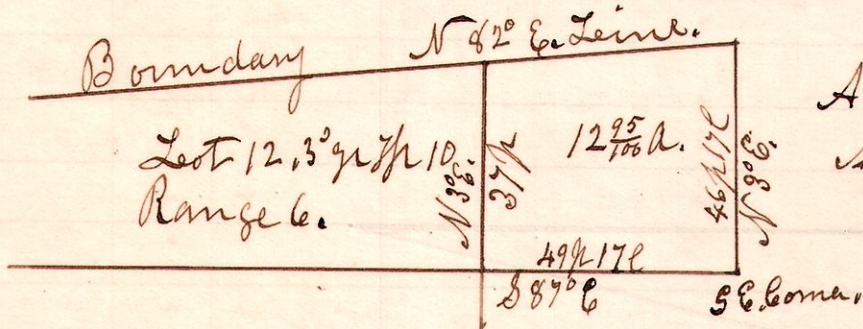 Boundary N 82° E. Leine.
Lot 12, 3d qr Tp 10
Range 6.
N 3° E.
37p
12 95/100 A.
46p 17l
N 3° E.
49p 17l
S 87° E
S E. Corner,
A